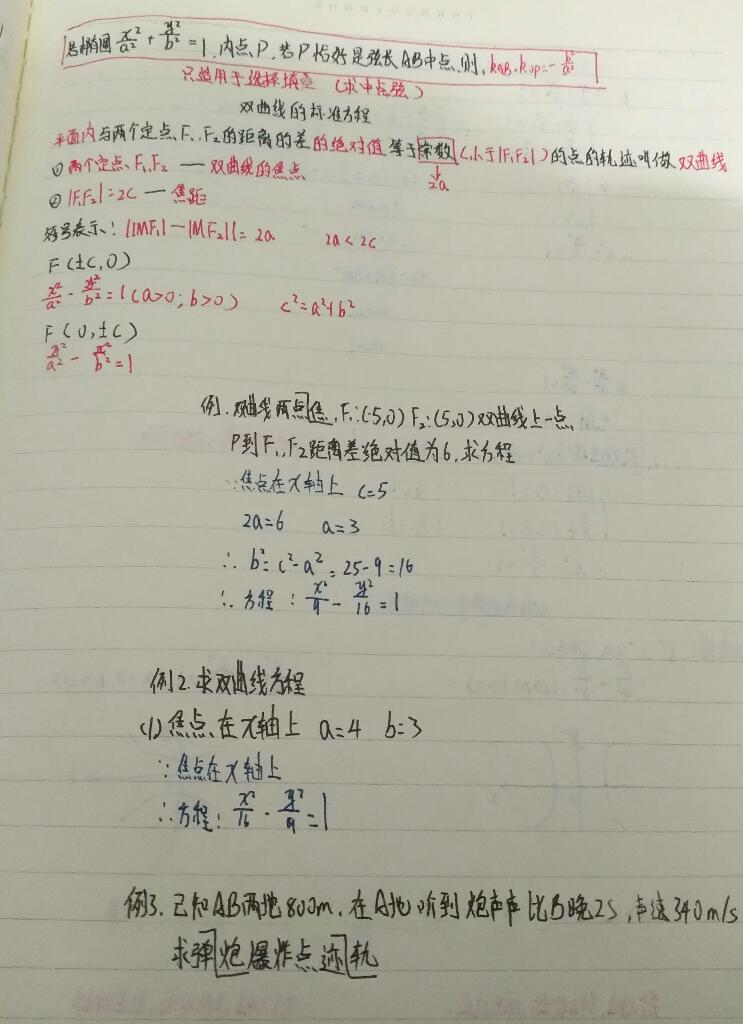 若椭圆 x²/a² + y²/b² = 1. 内点P. 若P恰好是弦长AB中点.则, kAB·kop=-b²/a²
只适用于选择填空 (求中点弦)
双曲线的标准方程
平面内与两个定点F₁,F₂的距离的差的绝对值等于常数(小于|F₁F₂|)的点的轨迹叫做双曲线
2a
① 两个定点F₁,F₂ — 双曲线的焦点
② |F₁F₂|=2C — 焦距
符号表示: ||MF₁|-|MF₂||=2a 2a<2c
F(±C,0)
x²/a² - y²/b² = 1 (a>0; b>0) c²=a²+b²
F(0,±C)
y²/a² - x²/b² = 1
例1. 双曲线两点焦, F₁:(-5,0) F₂:(5,0) 双曲线上一点,
P到F₁,F₂距离差绝对值为6,求方程
∵焦点在x轴上 C=5
2a=6 a=3
∴ b²=c²-a²=25-9=16
∴ 方程: x²/9 - y²/16 = 1
例2.求双曲线方程
(1) 焦点在x轴上 a=4 b=3
∵焦点在x轴上
∴方程: x²/16 - y²/9 = 1
例3. 已知AB两地800m. 在A地听到炮声声比B晚2S, 声速340m/s
求弹炮爆炸点迹轨